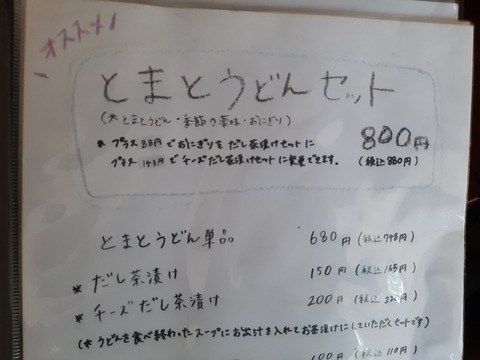 オススメ!
とまとうどんセット
(※とまとうどん・季節の薬味・おにぎり)
800円
* プラス88円でおにぎりをだし茶漬けセットに
プラス143円でチーズだし茶漬けセットに変更できます。
(税込880円)
とまとうどん単品 680円(税込748円)
* だし茶漬け 150円(税込165円)
* チーズだし茶漬け 200円(税込220円)
(※うどんを食べ終わったスープにお出汁を入れてお茶漬けにしていただくセットです)
100円(税込110円)